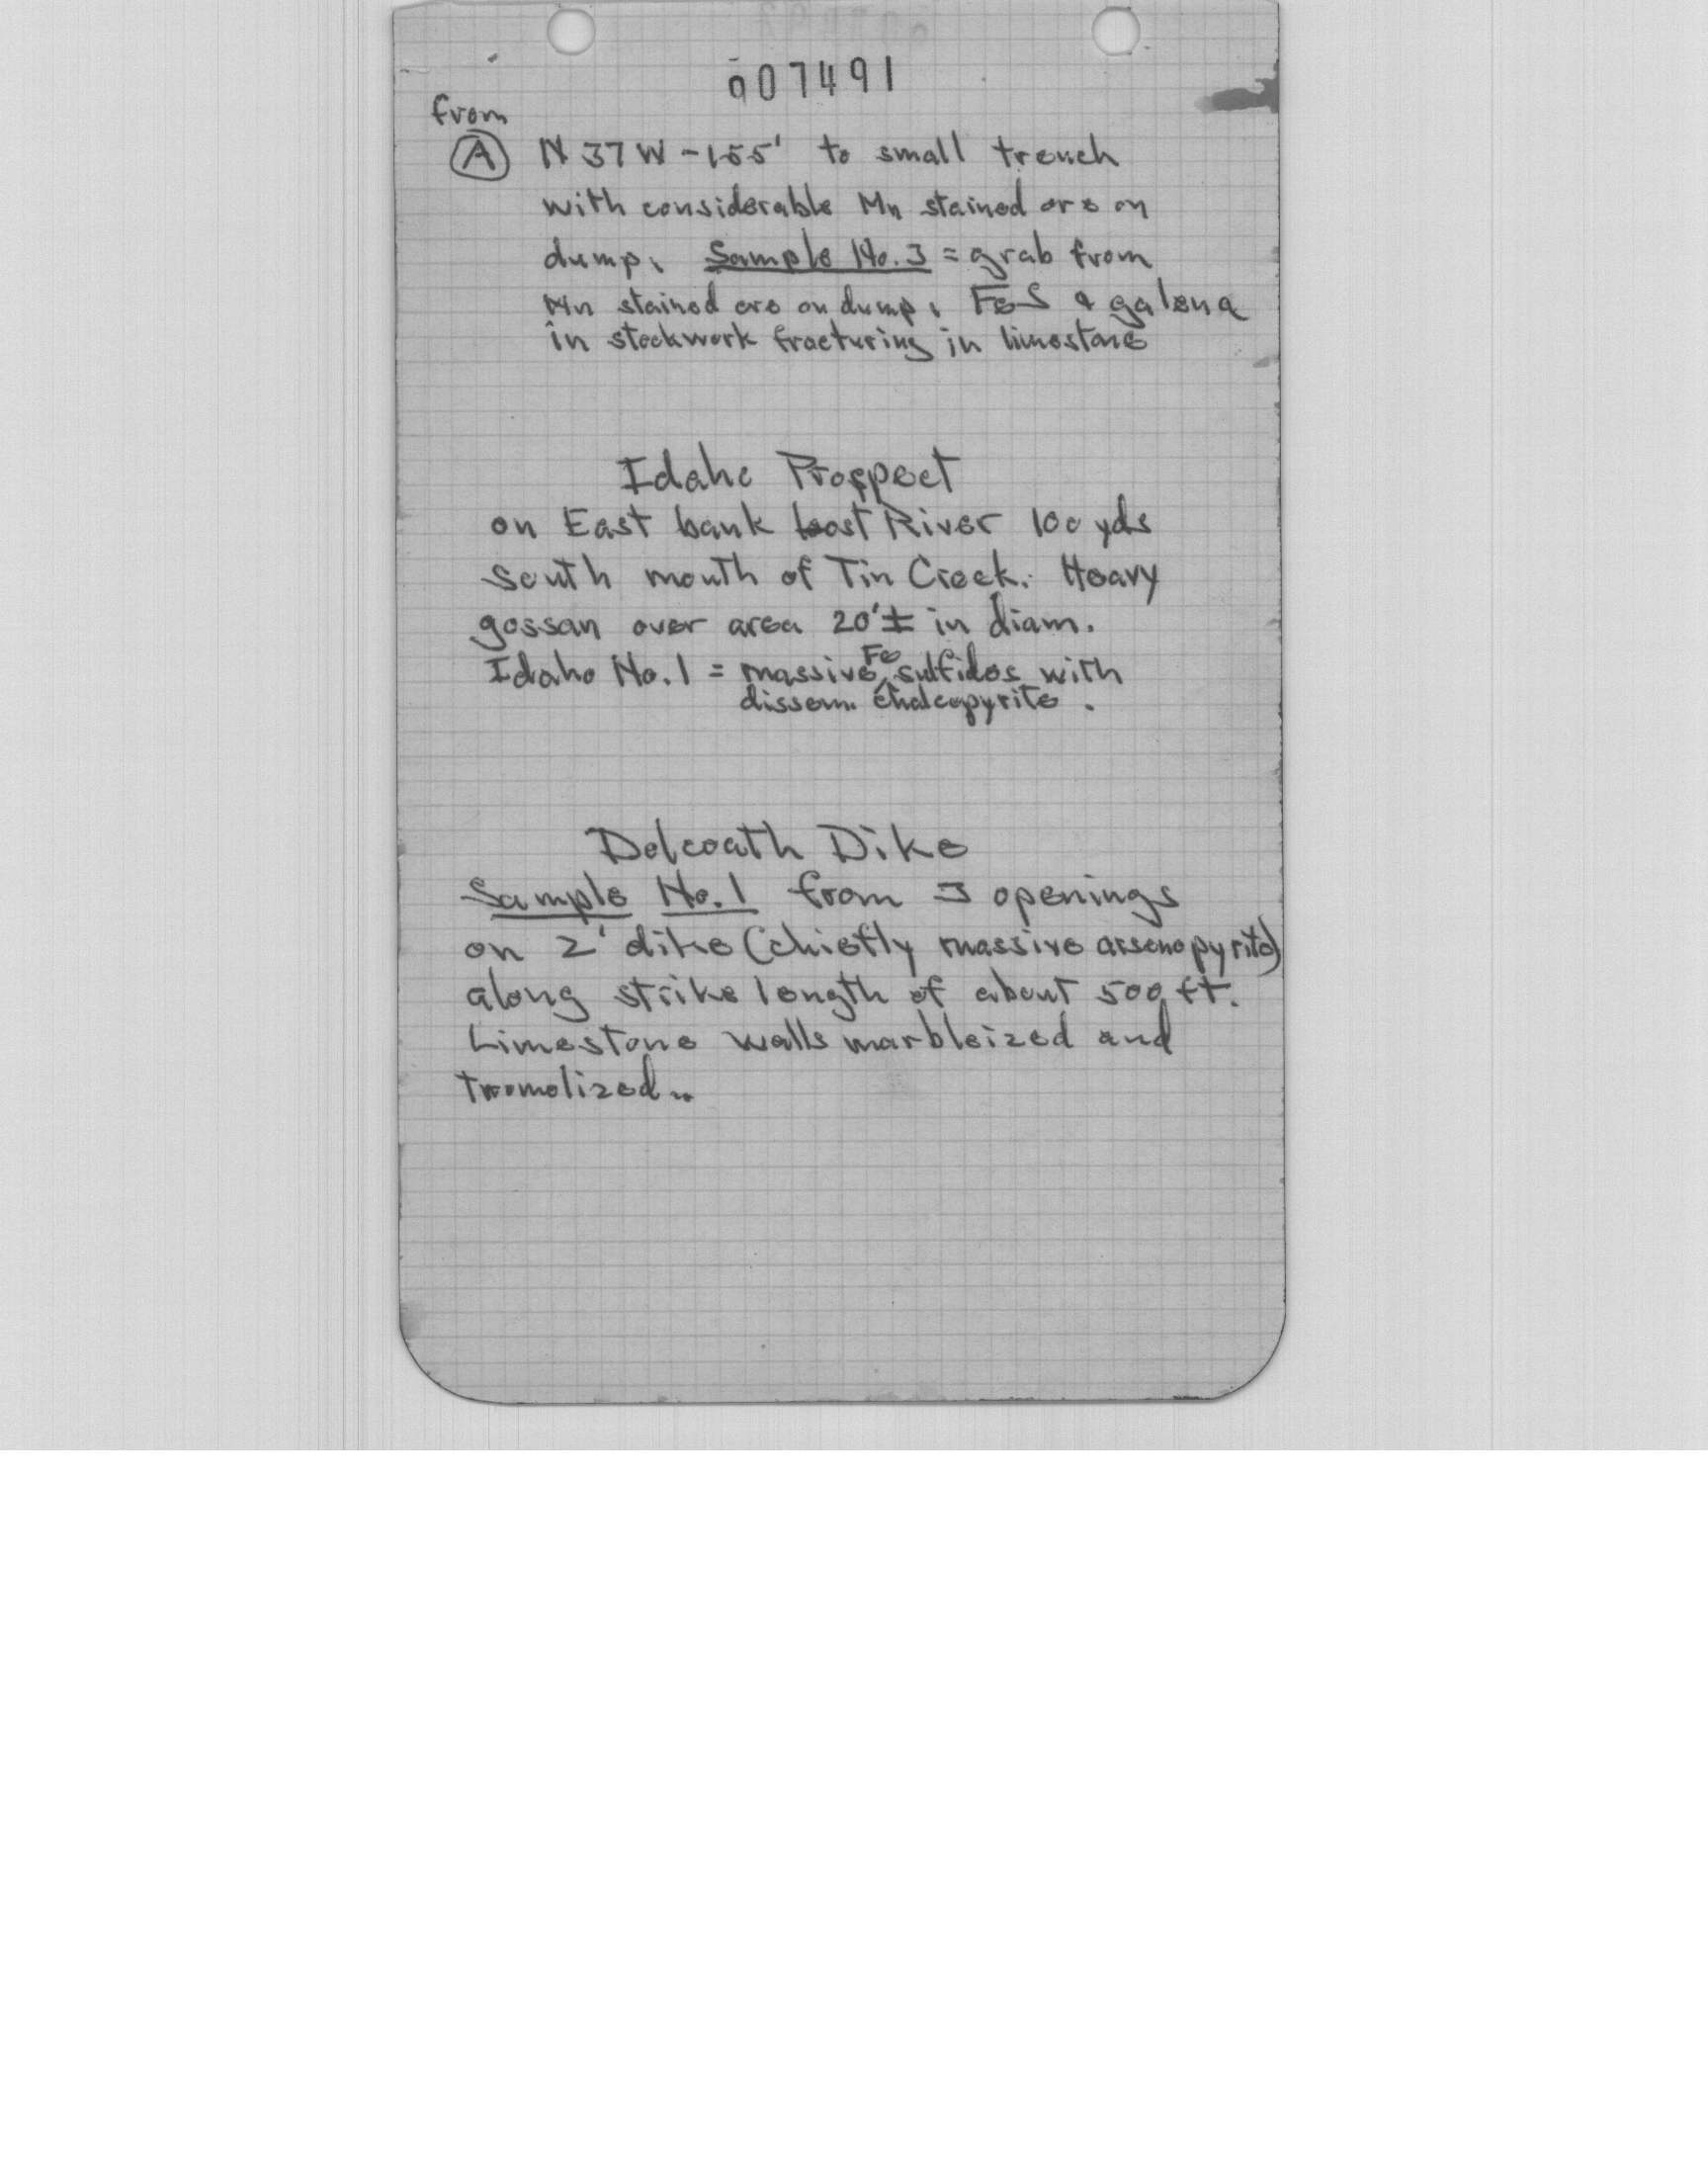 007491
from
Ⓐ N 37 W - 155' to small trench
with considerable Mn stained ore on
dump. Sample No. 3 = grab from
Mn stained ore on dump. FeS & galena
in stockwork fracturing in limestone
Idaho Prospect
on East bank Lost River 100 yds
South mouth of Tin Creek. Heavy
gossan over area 20'± in diam.
Idaho No. 1 = massive Fe sulfides with
dissem. chalcopyrite.
Dolcoath Dike
Sample No. 1 from 3 openings
on 2' dike (chiefly massive arsenopyrite)
along strike length of about 500 ft.
Limestone walls marbleized and
tremolized.